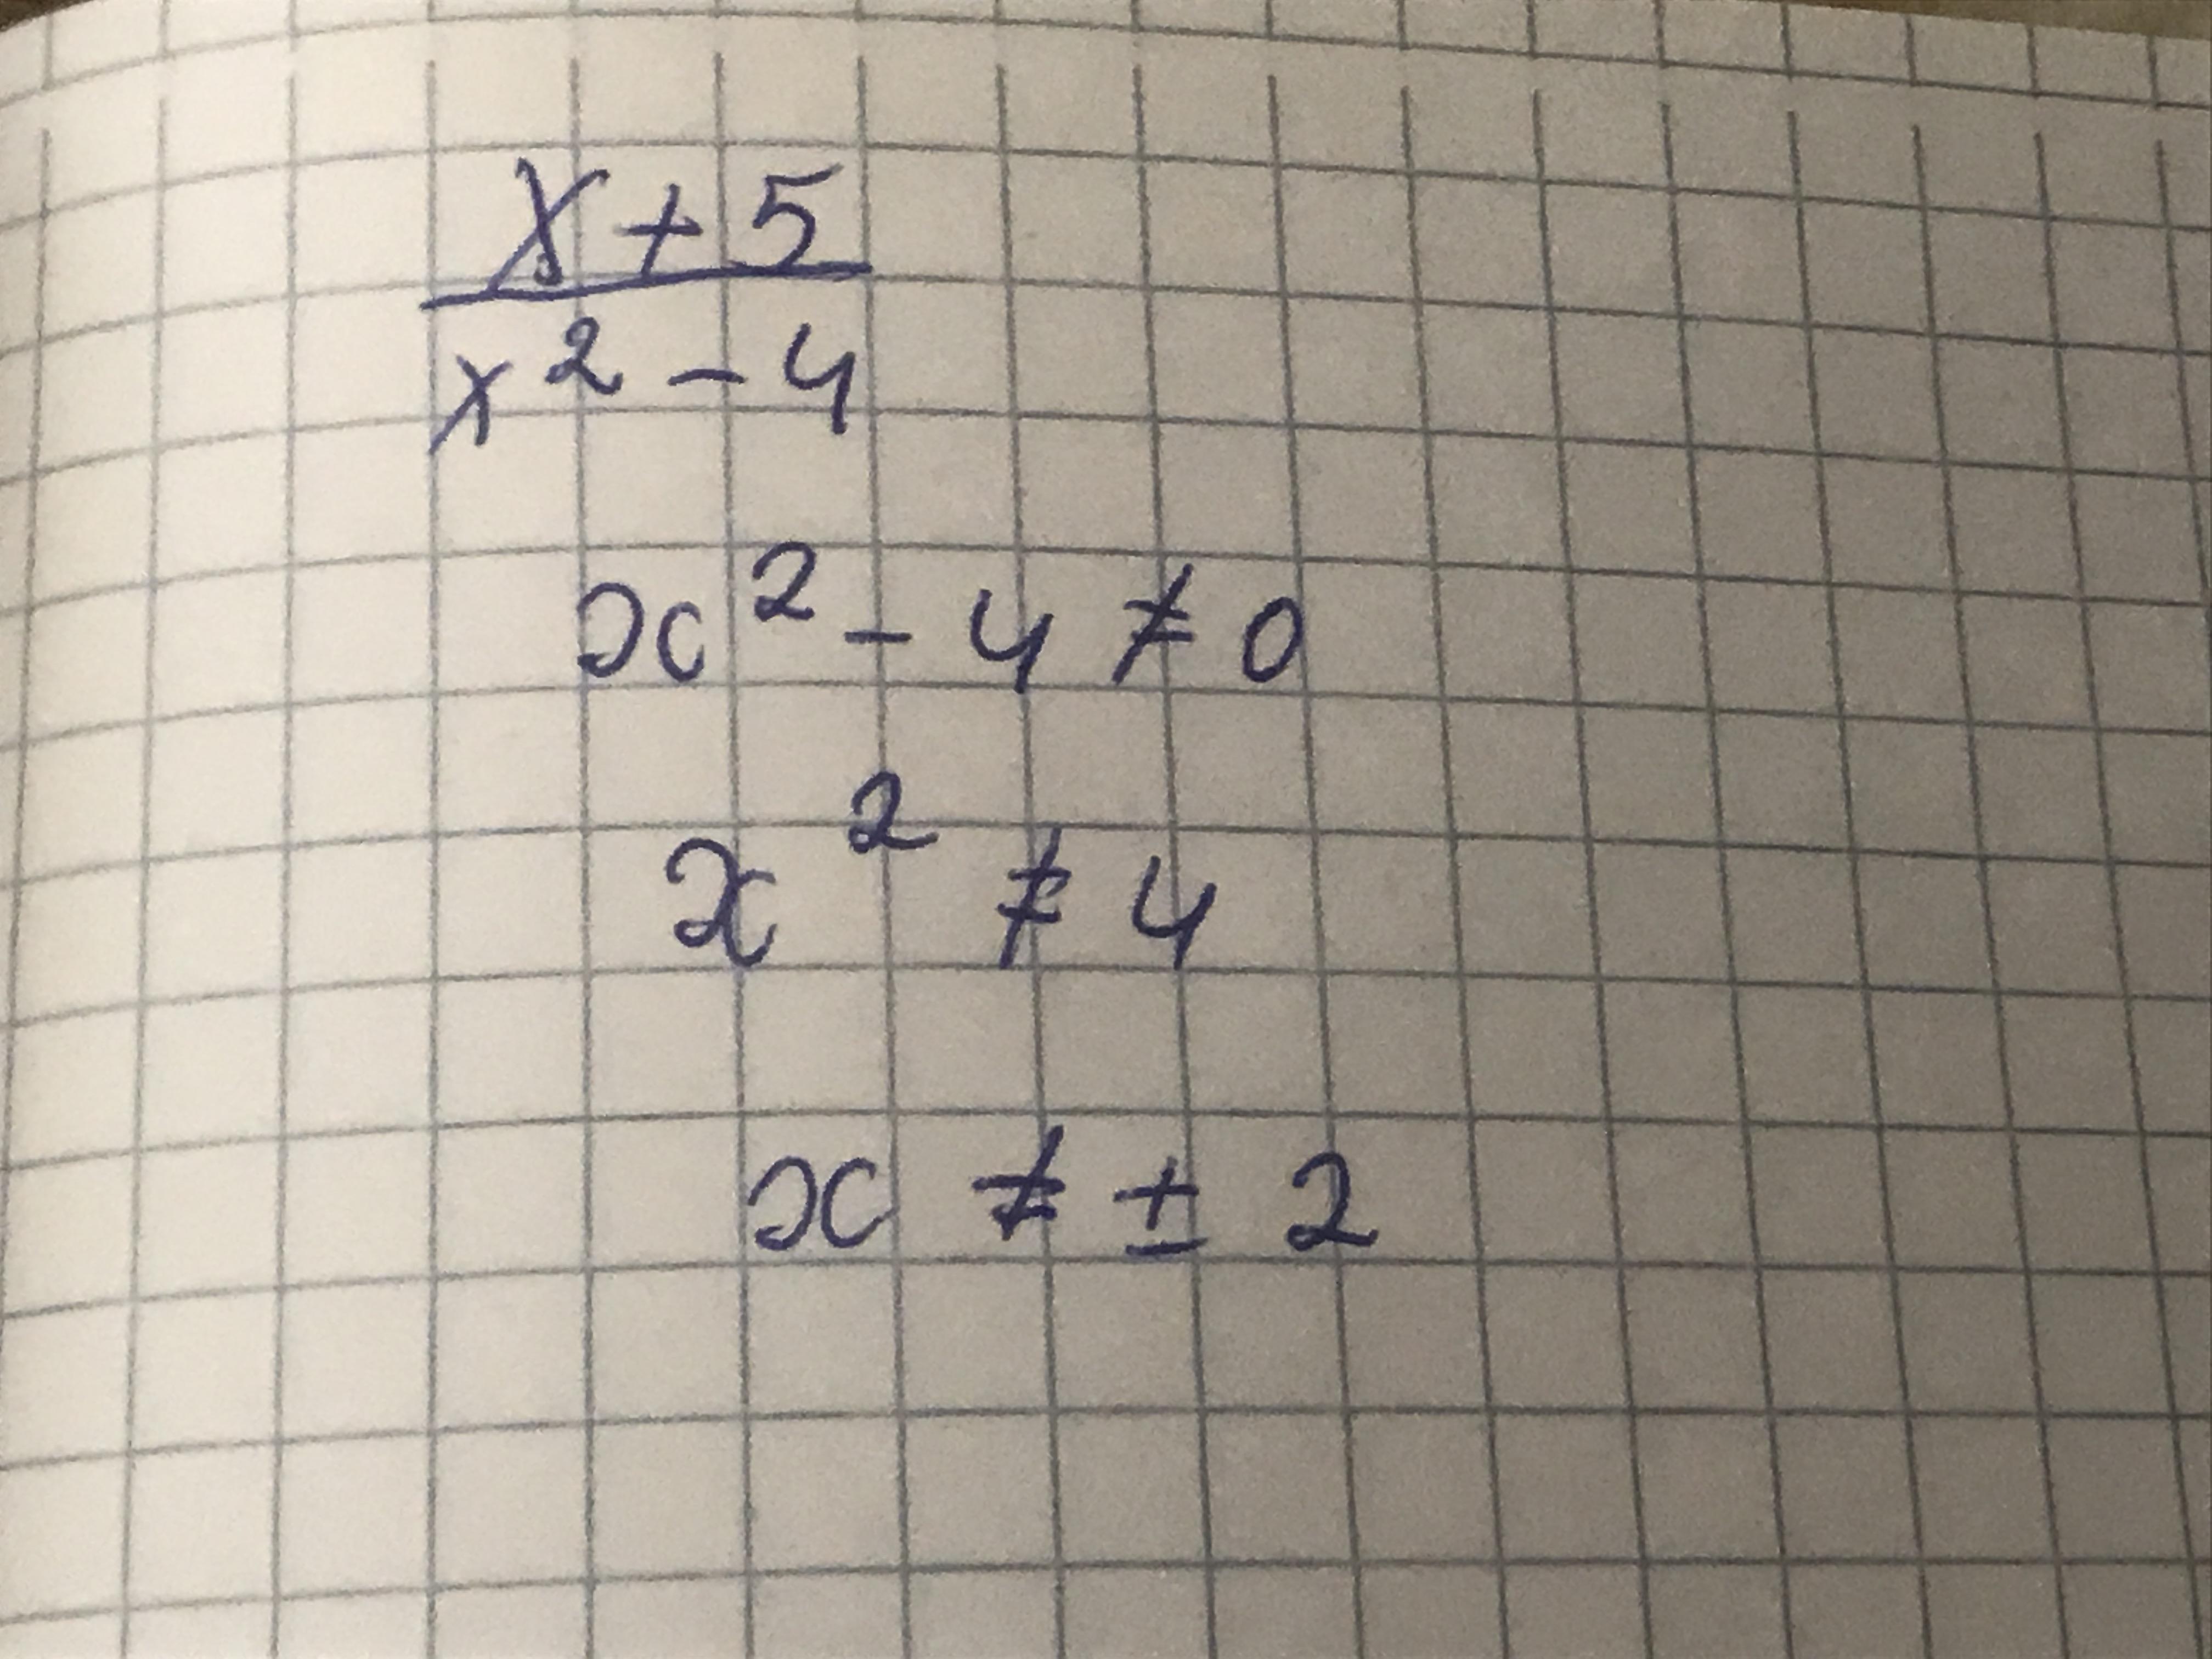 x + 5
x² - 4
x² - 4 ≠ 0
x² ≠ 4
x ≠ ± 2